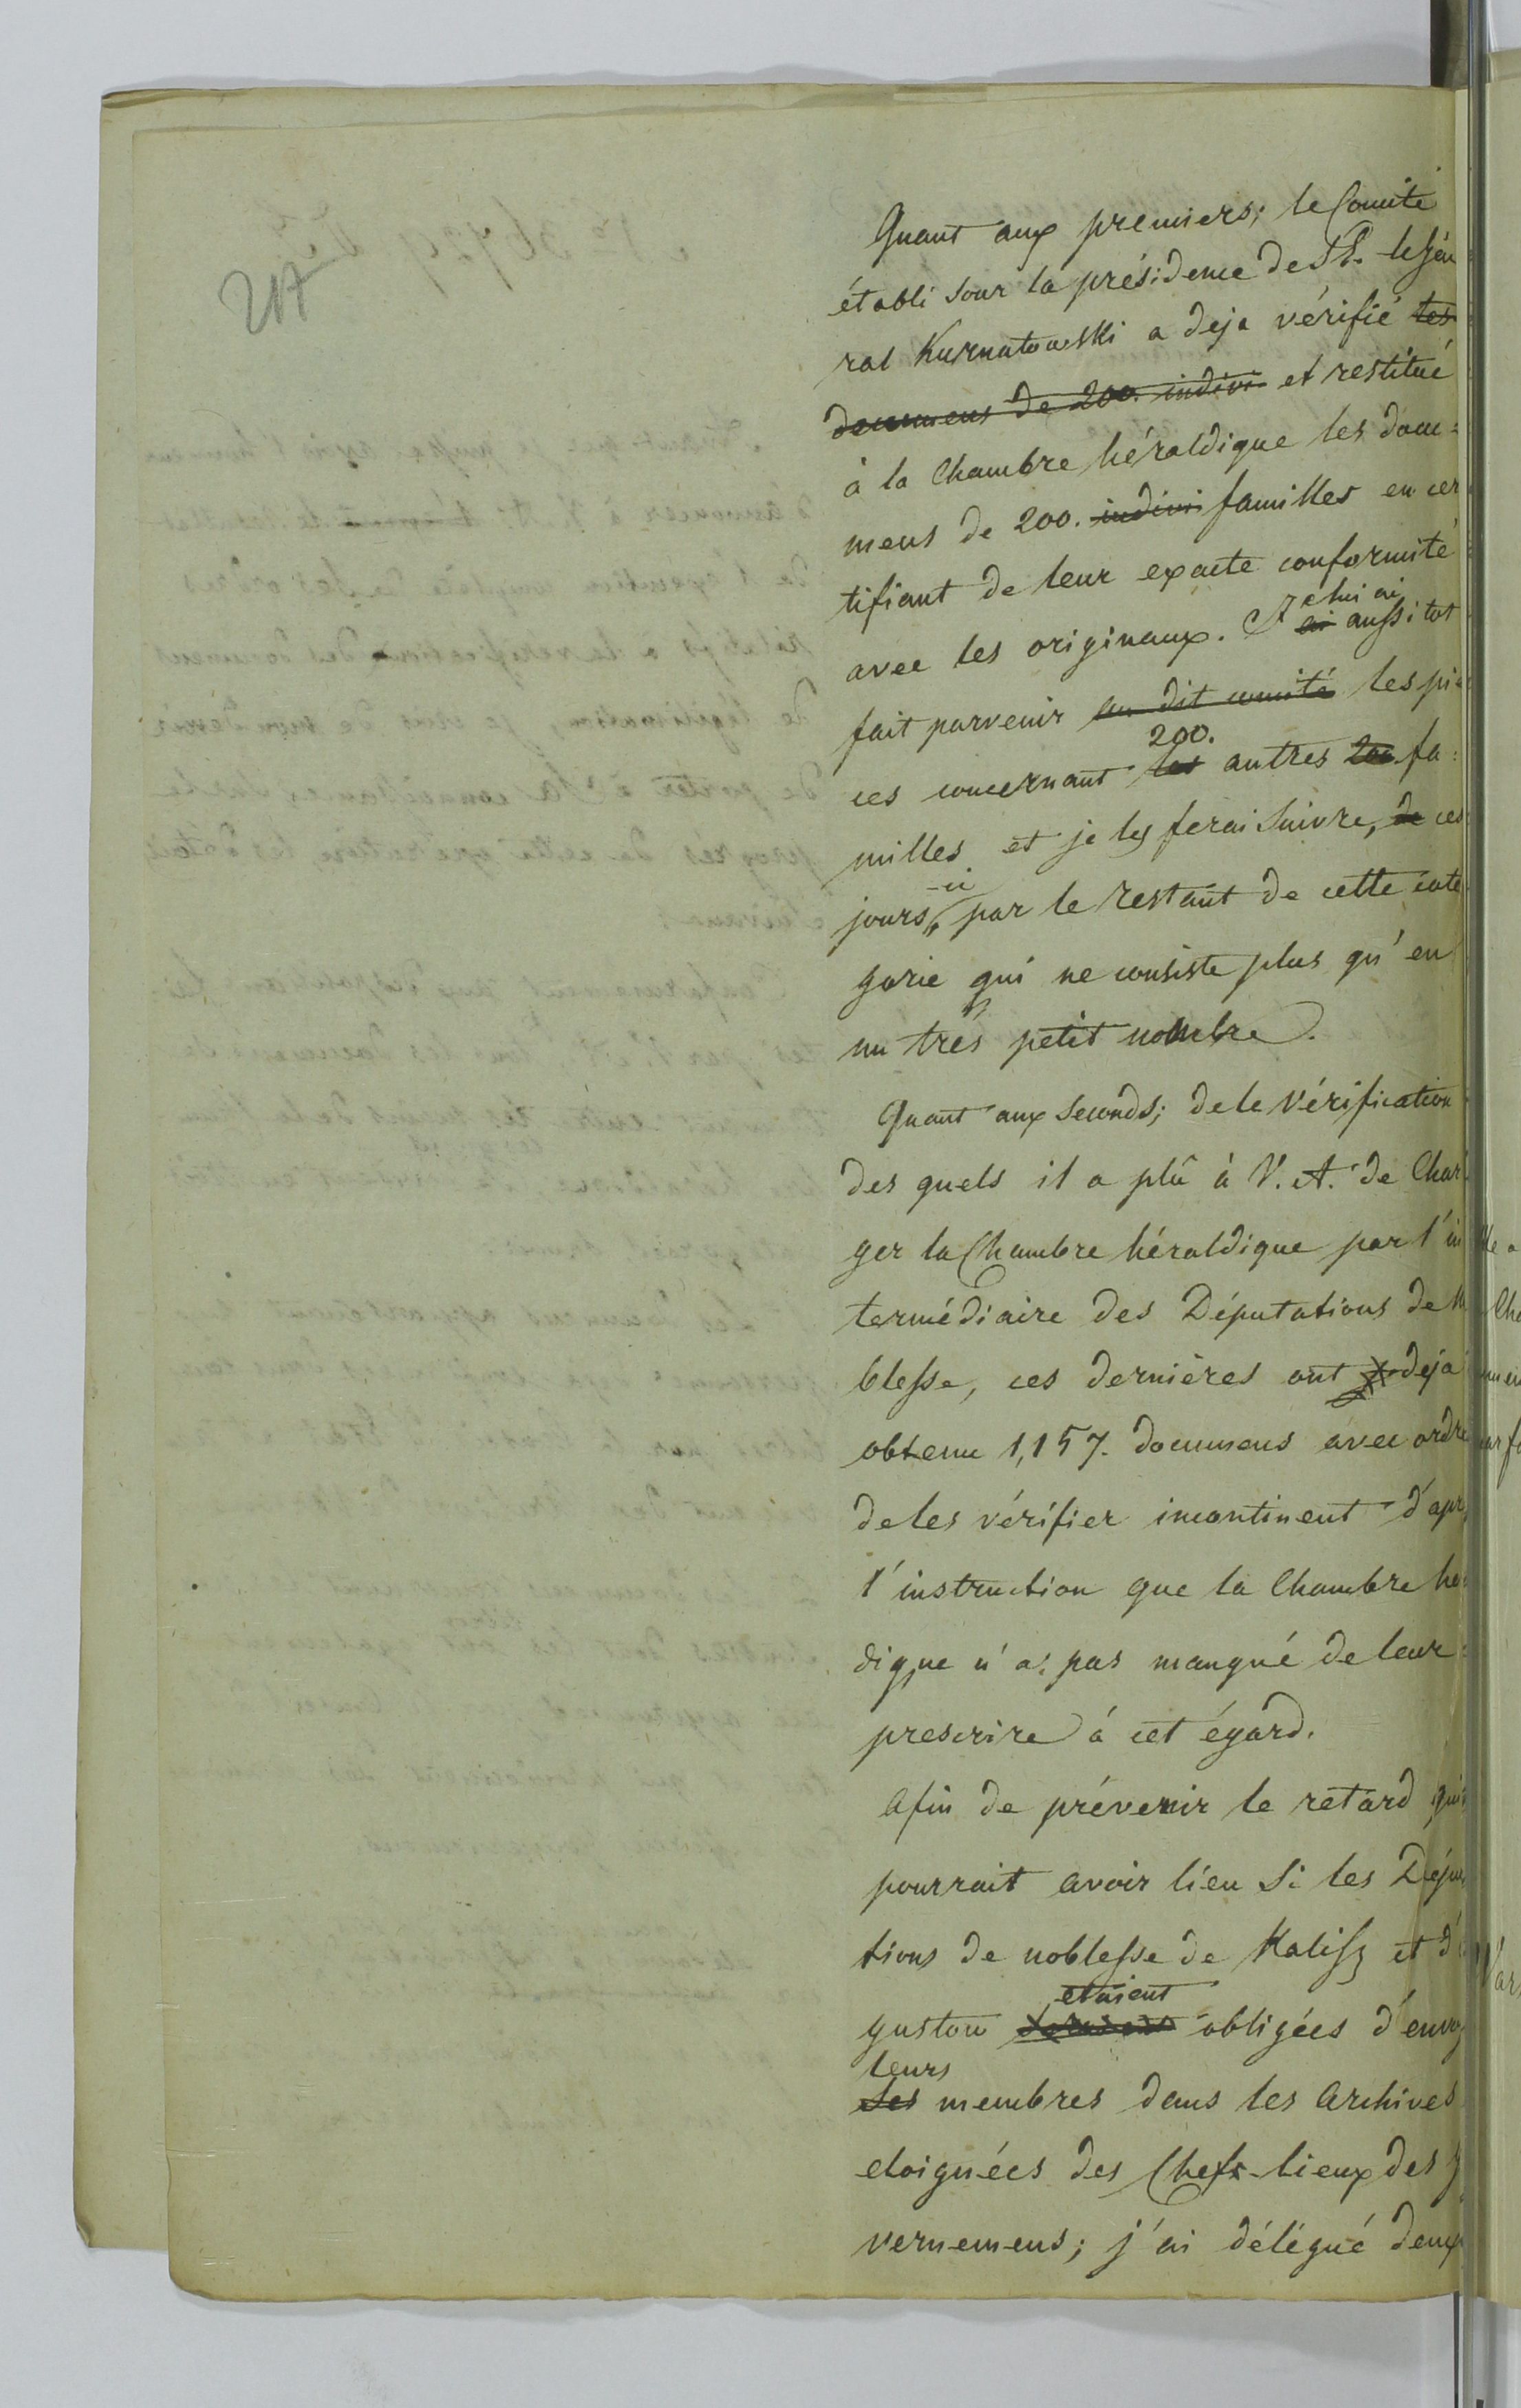 217
Quant aux premiers; le Comité
établi sour la présidence de S.E. le Géné
ral Kurnatowski a deja vérifié les
documens de 200. indivi et restitué
à la Chambre héraldique les docu=
mens de 200. indivi familles en cer
tifiant de leur exacte conformité
avec les originaux. Je lui ai ai aussitot
fait parvenir au dit comité les piè
ces concernant les 200. autres 200 fa=
milles et je les ferai Suivre, de ces
jours-ci par le restant de cette caté
gorie qui ne consiste plus qu'en
un très petit nombre.
Quant aux Seconds; de le Vérification
des quels il a plû à V. A. de Char
ger la Chambre héraldique par l'in
termédiaire des Députations de N
blesse, ces dernières ont deja
obtenu 1,157. documens avec ordre
de les vérifier incontinent d'apr
l'instruction que la Chambre hé
digue n'a pas manqué de leur
prescrire à cet égard.
Afin de prévenir le retard qui
pourrait avoir lieu Si les Dépu
tions de noblesse de Kalisz et d'
gustow etaient obligées d'envoy
leurs Ses membres dans les Archives
eloignées des Chefs-lieux des g
vernemens; j'ai délégué deux